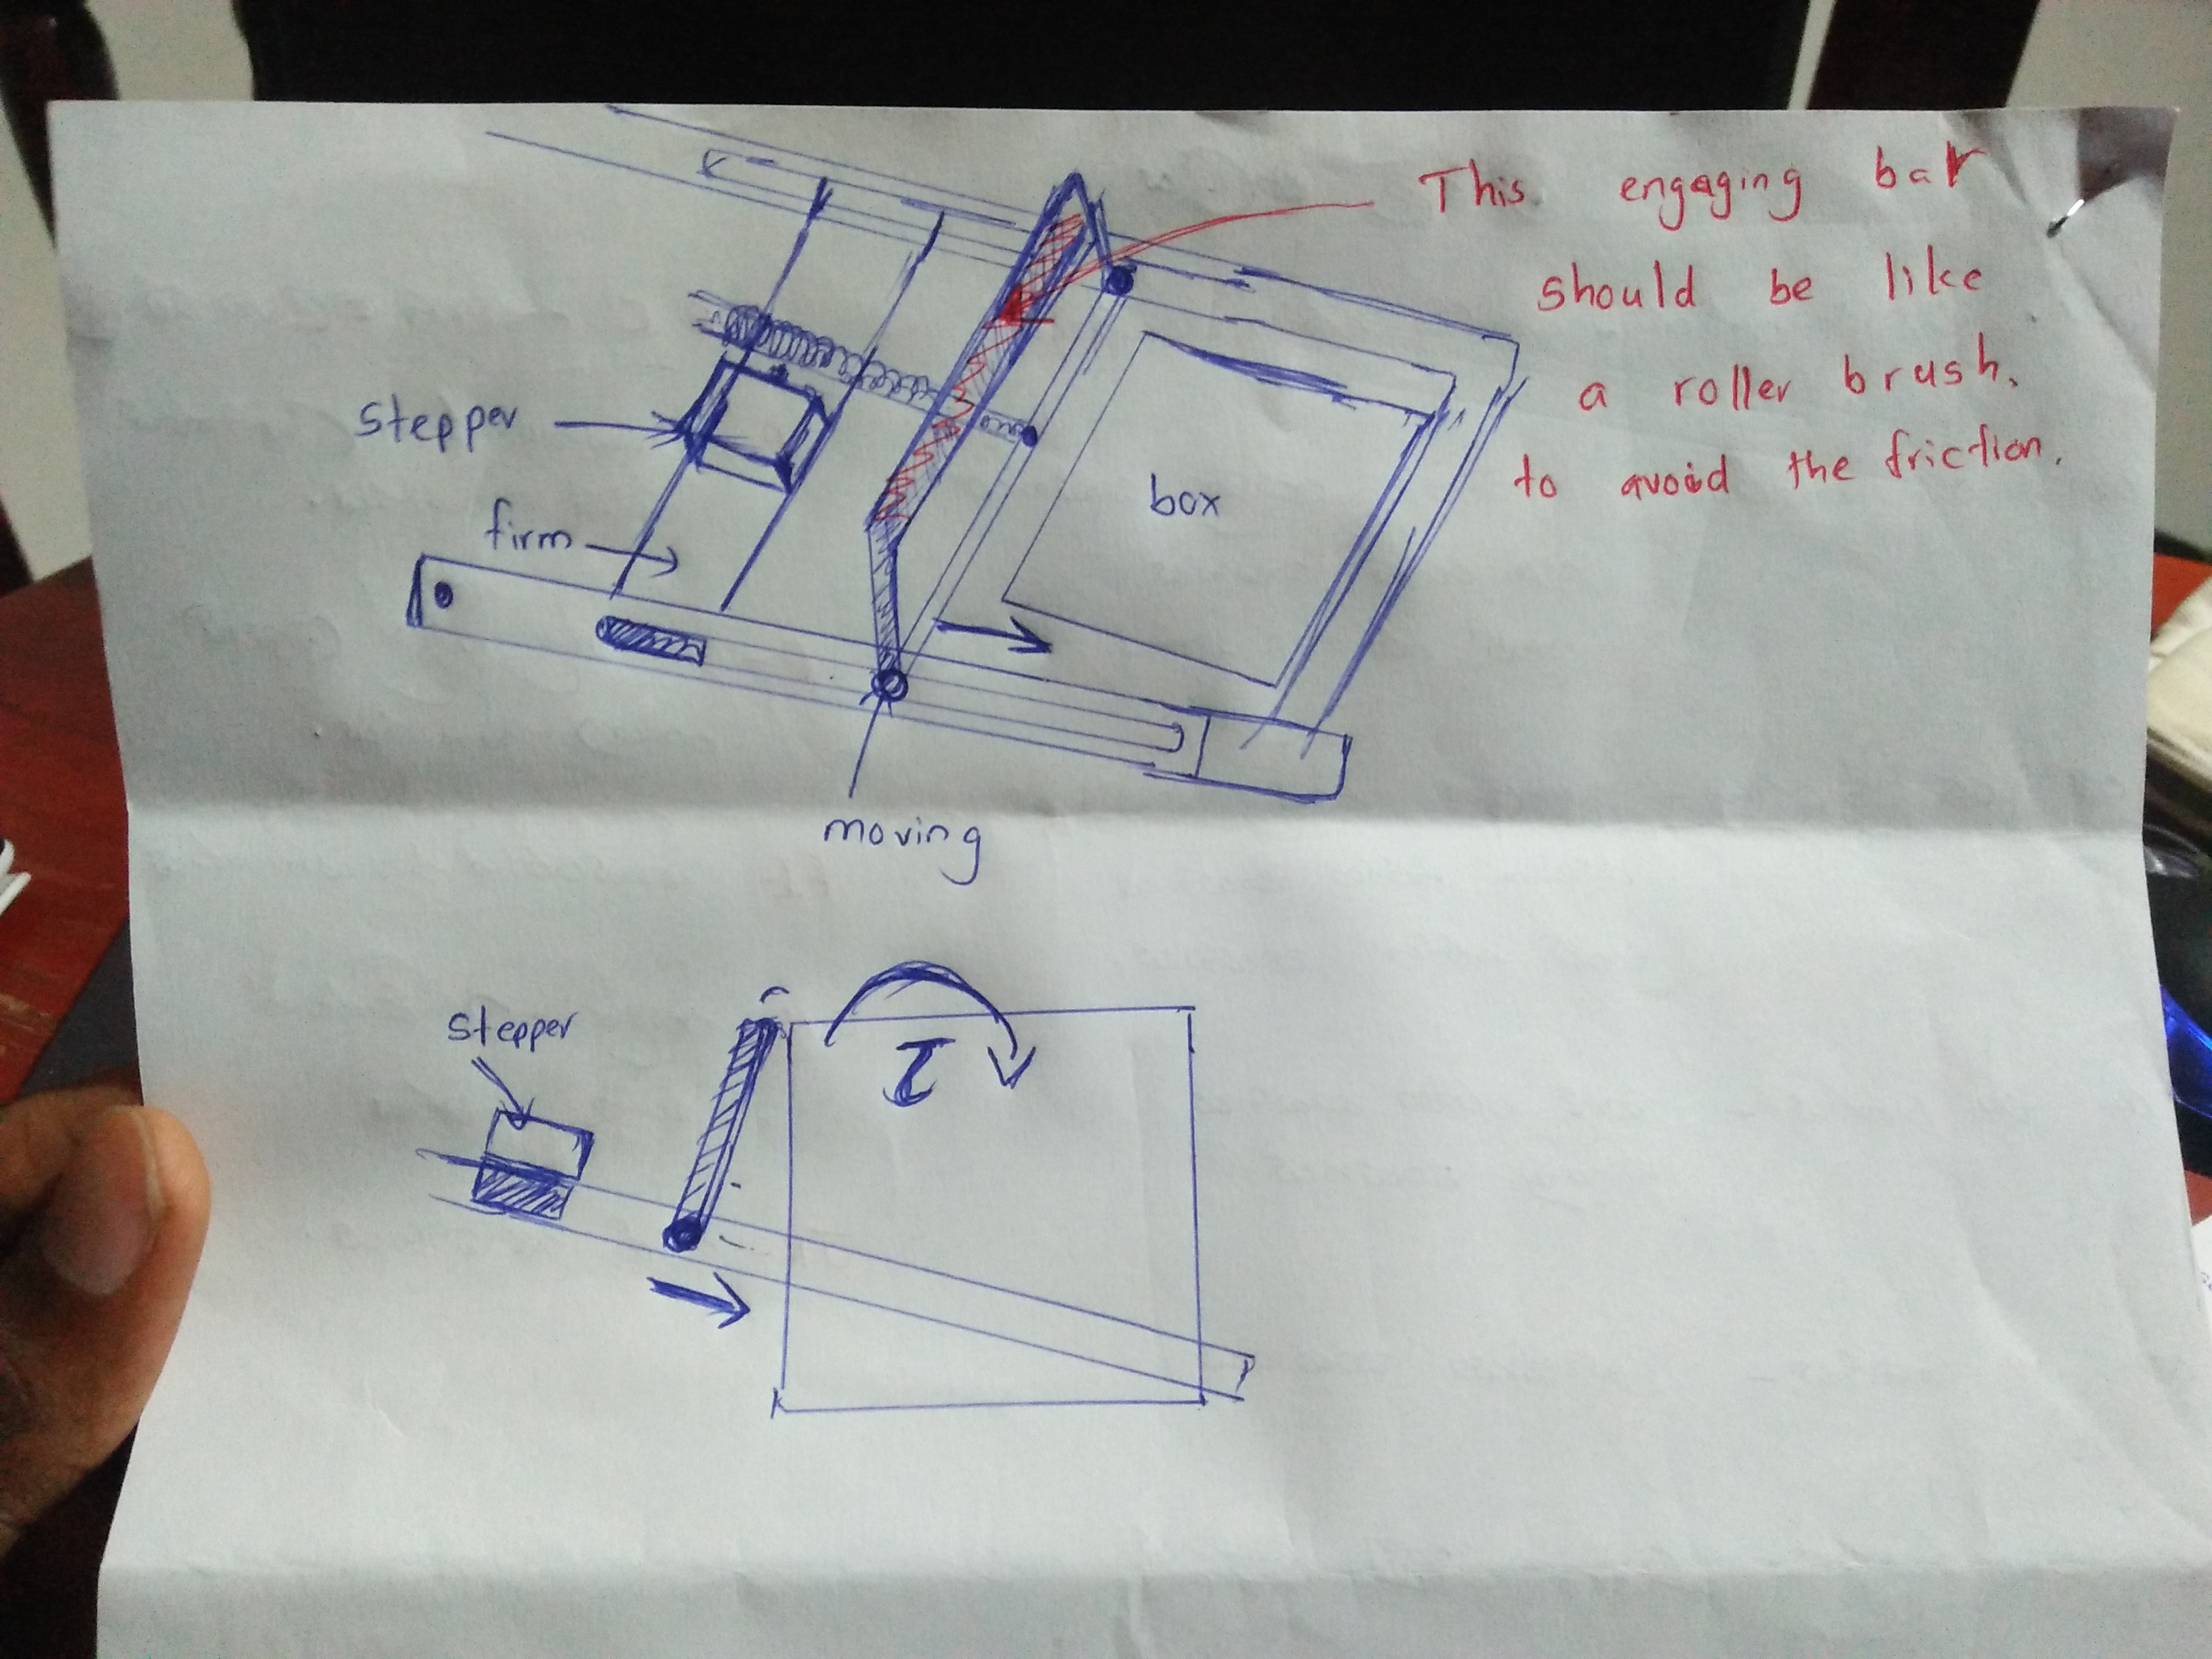 This engaging bar
should be like
a roller brush.
to avoid the friction.
stepper
box
firm
moving
stepper
τ